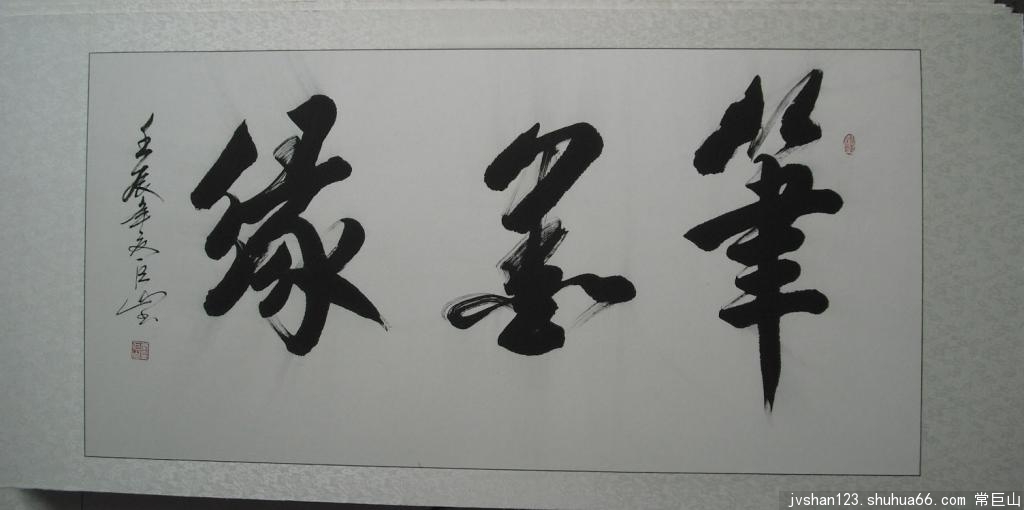 筆墨緣
壬辰年夏巨山書
jvshan123.shuhua66.com 常巨山